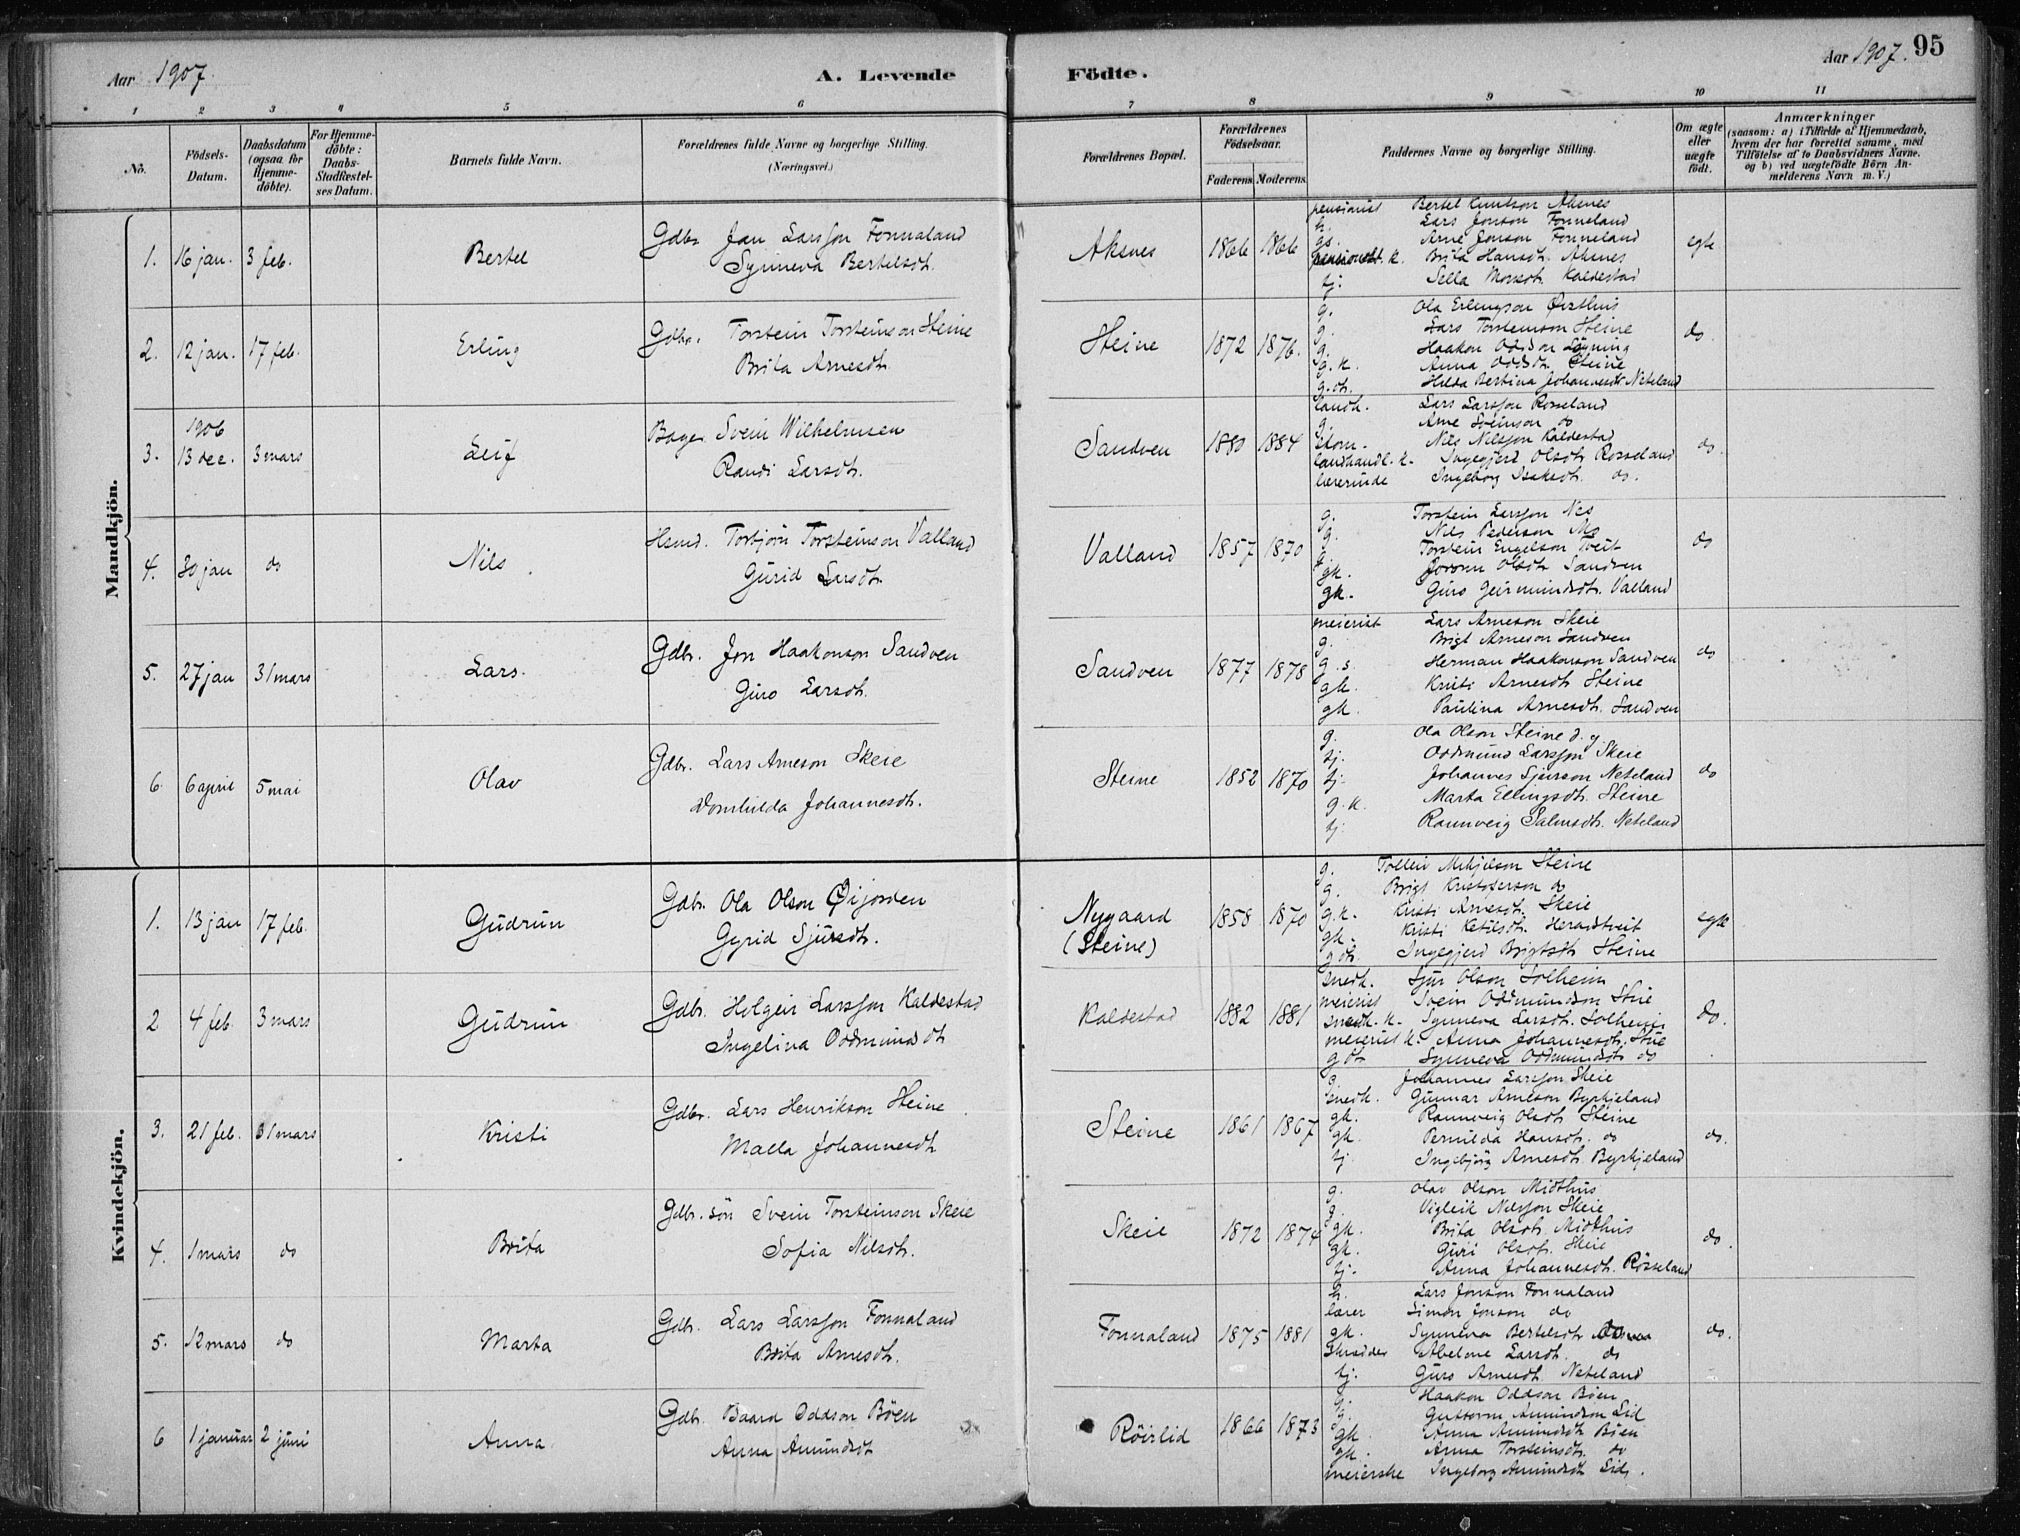 Aar 1907.
A. Levende
Födte.
Aar 1907. 95
1 2 3 4 5 6 7 8 9 10 11
No.
Födsels-Datum.
Daabsdatum (ogsaa for Hjemme-döbte).
For Hjemme-döbte: Daabs-Stadfæstel-ses Datum.
Barnets fulde Navn.
Forældrenes fulde Navne og borgerlige Stilling. (Næringsvei.)
Forældrenes Bopæl.
Forældrenes Födselsaar.
Faderens. Moderens.
Faddernes Navne og borgerlige Stilling.
Om ægte eller uægte födt.
Anmærkninger
(saasom: a) i Tilfælde af Hjemmedaab, hvem der har forrettet samme, med Tilföielse af to Daabsvidners Navne, og b) ved uægtefödte Börn An-melderens Navn m. V.)
Mandkjön.
1. 16 jan. 3 feb. Bertel
Gdbr. Jan Larsson Fonnaland
Synneva Bertelsdt.
Aksnes 1866 1866
pensionist Bertel Knutson Aksnes
h. Lars Jonson Fonneland
gs. Arne Jonson Fonneland
pensionist. k. Brita Hansdt. Aksnes
tj: Sella Monsdt. Kaldestad
egte
2. 12 jan. 17 feb. Erling
Gdbr. Torstein Torsteinson Steine
Brita Arnesdt.
Steine 1872 1876.
g. Ola Erlingson Øvsthus
g. Lars Torsteinson Steine
g. Haakon Oddson Løyning
g. k. Anna Oddsdt. Steine
g. dt. Hilda Bertina Johannesdt. Neteland
do.
3. 1906 13 dec. 3 mars Leif
Bager Svein Wilhelmsen
Randi Larsdt.
Sandven 1880 1884
landh. Lars Larsson Rosseland
g. Arne Sveinson do
Nils Nilsson Kaldestad
landhandl. k. Ingegjerd Olsdt. Rosseland
lærerinde Ingeborg Isaksdt. do.
do.
4. 30 jan do Nils
Hmd. Torbjørn Torsteinson Valland
Gurid Larsdt.
Valland 1857 1870
g. Torstein Larsson Nes
g. Nils Pederson Mo
g. Torstein Engelson Tveit
gk. Joronn Olsdt. Sandven
gk. Guro Geirmundsdt. Valland
do
5. 27 jan 31 mars Lars.
Gdbr. Jon Haakonson Sandven
Guro Larsdt.
Sandven 1877 1878
meierist Lars Arneson Skeie
g. Brigt Arneson Sandven
g. s. Herman Haakonson Sandven
gk. Kristi Arnesdt. Steine
gk. Paulina Arnesdt. Sandven
do
6. 6 april 5 mai Olav
Gdbr. Lars Arneson Skeie
Domhilda Johannesdt.
Steine 1852 1870
g. Ola Olson Steine d. y
tj. Oddmund Larsson Skeie
tj. Johannes Sjurson Neteland
g. k. Marta Ellingsdt. Steine
tj. Rannveig Salmsdt. Neteland
do
Kvindekjön.
1. 13 jan 17 feb. Gudrun
Gdbr. Ola Olson Øijorden
Gyrid Sjursdt.
Nygaard (Steine) 1858 1870
g. Tolleiv Mikjelson Steine
g. Brigt Kristoferson do
g. k. Kristi Arnesdt. Skeie
gk. Kristi Ketilsdt. Herandtveit
g dt. Ingegjerd Brigtsdt. Steine
egte
2 4 feb. 3 mars Gudrun
Gdbr. Holgeir Larsson Kaldestad
Ingelina Oddmundsdt
Kaldestad 1882 1881
snedk. Sjur Olson Solheim
meierist Svein Oddmundson Skeie
snedk. k. Synneva Larsdt. Solheim
meierist k. Anna Johannesdt. Skeie
g dt Synneva Oddmundsdt do
do.
3. 21 feb. 31 mars Kristi
Gdbr. Lars Henrikson Steine
Malla Johannesdt
Steine 1861 1867
g. Johannes Larsson Skeie
snedk. Gunnar Arneson Byrkjeland
gk. Rannveig Olsdt. Steine
gk. Pernilda Hansdt. do
tj. Ingebjørg Arnesdt. Byrkjeland
do.
4. 1 mars do Brita
Gdbr. søn Svein Torsteinson Skeie
Sofia Nilsdt.
Skeie 1872 1874
g. Olav Olson Midthus
g. Vigleik Nilsson Skeie
gk. Brita Olsdt. Midthus
gk. Guri Olsdt. Skeie
tj. Anna Johannesdt. Røsseland
do.
5. 12 mars do Marta
Gdbr. Lars Larsson Fonnaland
Brita Arnesdt.
Fonnaland 1875 1881
h. Lars Jonson Fonnaland
lærer Simon Jonson do
gk. Synneva Bertelsdt.
Skrædder Abelone Larsdt. do
tj. Guro Arnesdt. Neteland
do.
6 1 januar 2 juni Anna.
Gdbr. Baard Oddson Böen
Anna Amundsdt
Röirlid 1866 1873
g. Haakon Oddson Böen
g. Guttorm Amundson Lid
gk. Anna Amundsdt Böen
gk. Anna Torsteinsdt. do
meierske Ingeborg Amundsdt Lid.